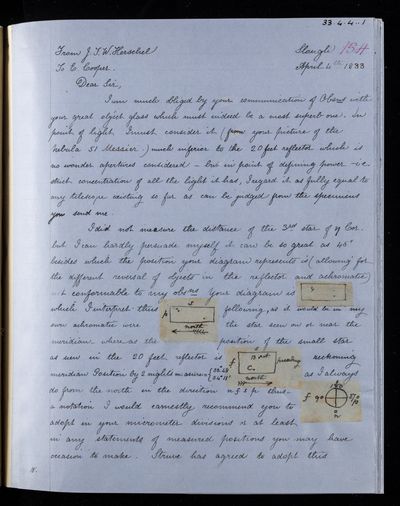 33.4.4..1
From J. F. W. Herschel Slough 154
To E. Cooper. April 4th 1833
Dear Sir,
I am much obliged by your communication of Obsns with
your great object glass which must indeed be a most superb one. In
point of light I must consider it (from your picture of the
Nebula 51 Messier) much inferior to the 20 feet reflector which is
no wonder apertures considered - but in point of defining power - i.e.
strict concentration of all the light it has, I regard it as fully equal to
any telescope existing so far as can be judged from the specimens
you send me.
I did not measure the distance of the 3rd star of η Cor.
but I can hardly persuade myself it can be so great as 45"
besides which the position your diagram represents is (allowing for
the different reversal of objects in the reflector and achromatic)
not conformable to my obsns Your diagram is
which I interpret thus p s north following, as it would be in my
own achromatic were the star seen on or near the
meridian whereas the position of the small star
as seen in the 20 feet reflector is f B A C north preceding reckoning
meridian Position by 2 nights measures as I always
do from the north in the direction n f s p thus
a notation I would earnestly recommend you to f 90
adopt in your micrometer divisions or at least n
in any statements of measured positions you may have
occasion to make. Struve has agreed to adopt this